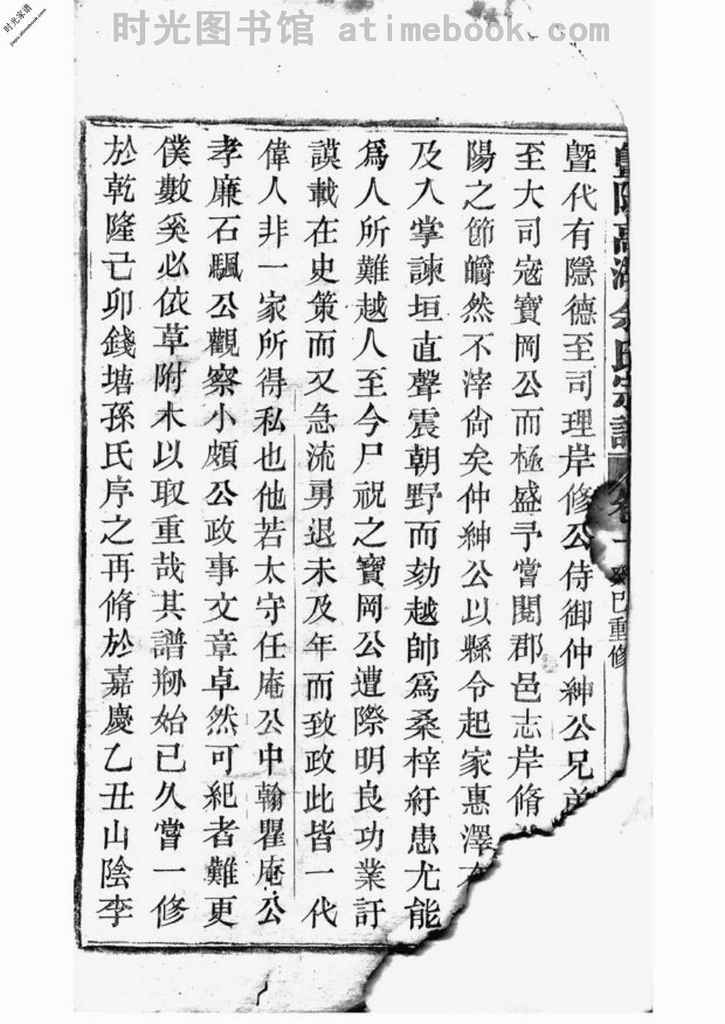 时光图书馆 atimebook.com
时光家谱
暨陽高湖余氏宗譜 卷一 癸巳重修
暨代有隱德至司理岸修公侍御仲紳公兄弟
至大司寇寶岡公而極盛予嘗閱郡邑志岸脩
陽之節皭然不滓尙矣仲紳公以縣令起家惠澤
及入掌諫垣直聲震朝野而劾越帥爲桑梓紓患尤能
爲人所難越人至今尸祝之寶岡公遭際明良功業訏
謨載在史策而又急流勇退未及年而致政此皆一代
偉人非一家所得私也他若太守任庵公中翰瞿庵公
孝廉石颿公觀察小頗公政事文章卓然可紀者難更
僕數奚必依草附木以取重哉其譜刱始已久嘗一修
於乾隆己卯錢塘孫氏序之再脩於嘉慶乙丑山陰李